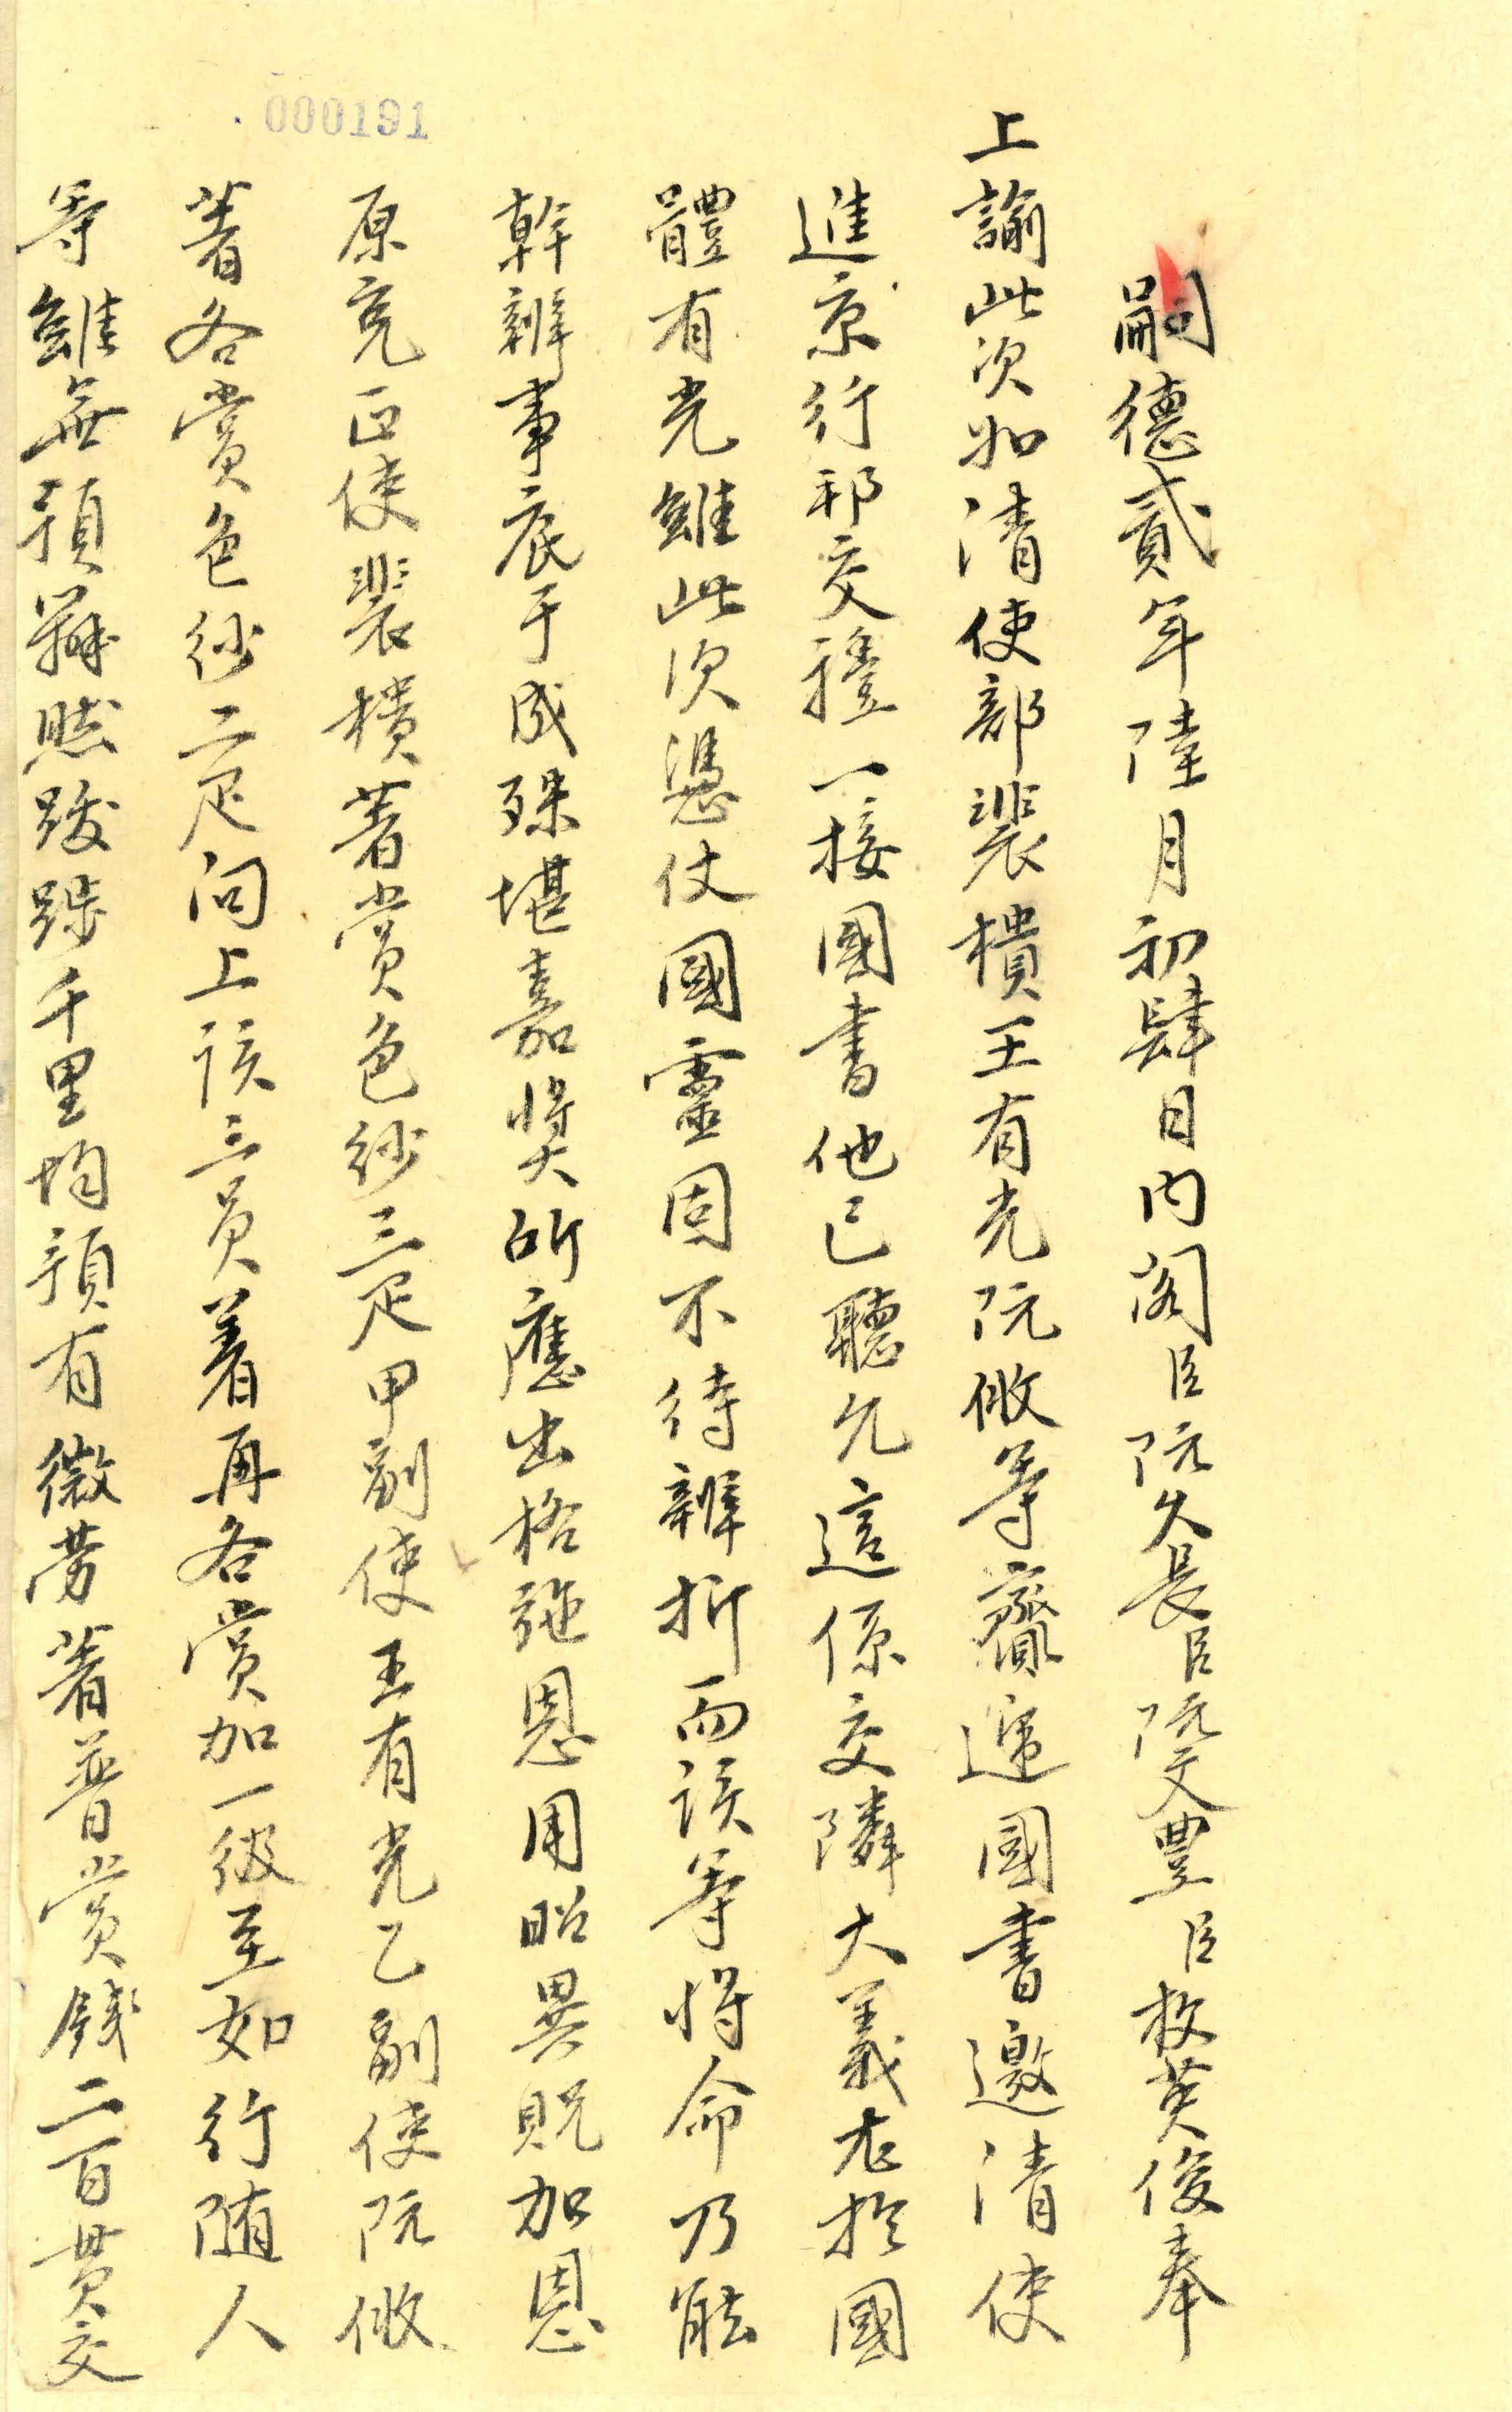 000191
嗣德貳年陸月初肆日内阁臣阮久長臣阮文豊臣枚英俊奉
上諭此次如清使部裴樻王有光阮做等齎遞國書邀清使
進京行邦交禮一接國書他已聽允這係交隣大義尤於國
體有光雖此次憑仗國靈固不待辦折而該等將命乃能
幹辦事底于成殊堪嘉奬所應出格施恩用昭異貺加恩
原充正使裴樻著賞色紗三疋甲副使王有光乙副使阮做
著各賞色紗二疋向上該三員着再各賞加一級至如行随人
等雖無預辦然跋踄千里均預有微劳著普賞錢二百貫交